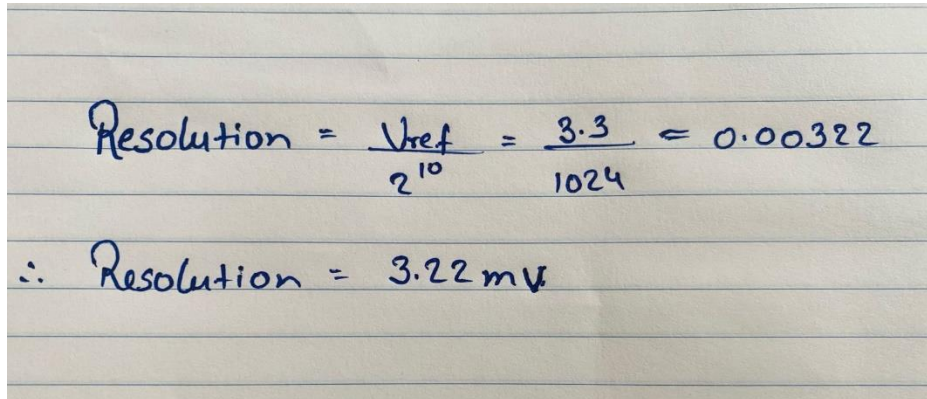 Resolution = Vref / 2^10 = 3.3 / 1024 = 0.00322
∴ Resolution = 3.22 mv.